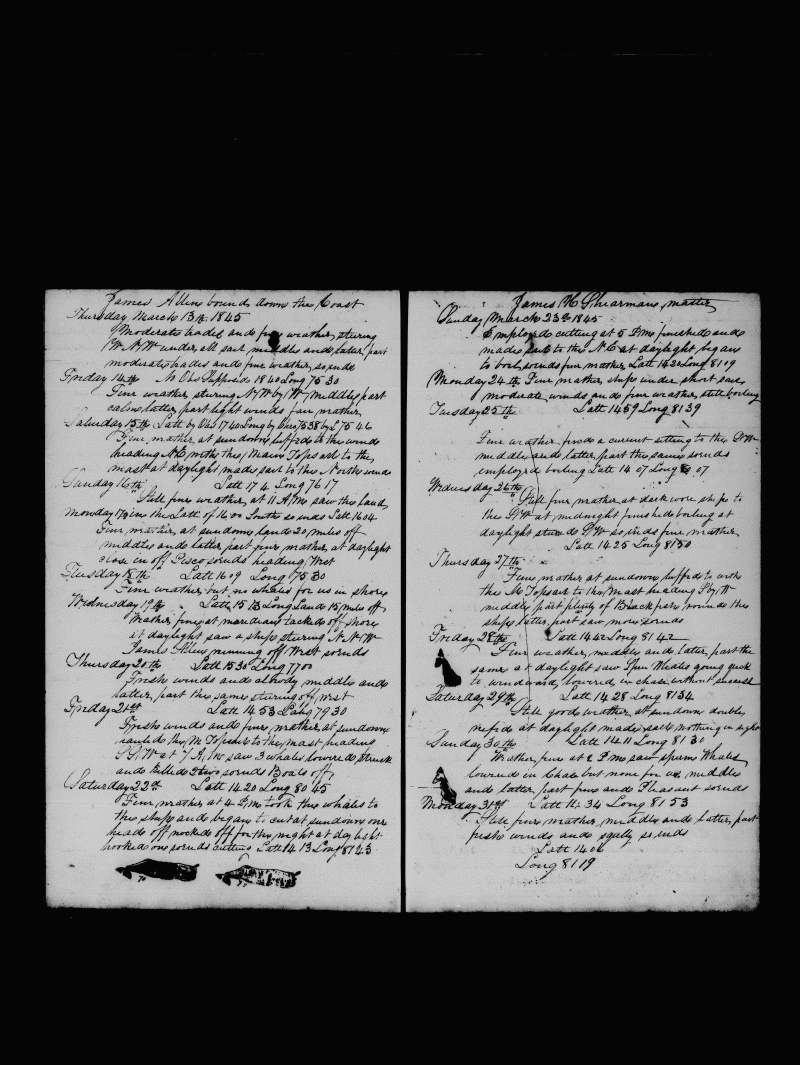 James Allen bound down the Coast
Thursday March 13th 1845
Moderate trades and fine weather, stearing
W.N.W under all sail middle and later part
moderate trades and fine weather, so ends
Friday 14th No Obs Supposed 18 40 Long 75 30
Fine weather stearing N W by W, middle part
calm latter part light winds fair weather,
Saturday 15th Latt by Obs 17 40 Long by Chro 75 38 by L 75 46
Fine weather at sundown luffed to the wind
heading NE with the Main Topsail to the
mast at daylight made sail to the North ends
Sunday 16th Latt 17 4 Long 76 17
Still fine weather, at 11 A,M saw the land
Monday 17th in the Latt of 16 00 South so ends Latt 16 04
Fine weather, at sundown land 20 miles off
middle and latter part fine weather, at daylight
close in off Pisco so ends heading West
Tuesday 18th Latt 16 09 Long 75 30
Fine weather but no whales for us in shore
Wednesday 19th Latt 15 13 Long Land 15 miles off
Weather fine, at meridian tacked off shore
at daylight saw a ship stearing N.N.W
James Allen running off West so ends
Thursday 20th Latt 15 30 Long 77 00
Fresh winds and cloudy middle and
latter, part the same stearing off west
Friday 21st Latt 14 53 Long 79 30
Fresh winds and fine weather, at sundown
hauled the M Topsail to the mast heading
S S W at 7 A,M saw 3 whales lowered Struck
and killed two so ends Boats off,
Saturday 22nd Latt 14 20 Long 80 45
Fine weather at 4 P,M took the whales to
the ship and began to cut at sundown one
head off nocked off for the night at daylight
hooked on so ends cutting Latt 14 13 Long 81 43
70 70
James H Shearman, master,
Sunday March 23d 1845
Employed cutting at 5 P.M finished and
made sail to the N E at daylight began
to boil so ends fine weather Latt 14 20 Long 81 09
Monday 24th Fine weather ship under short sail
moderate winds and fine weather, still boiling
Tuesday 25th Latt 14 59 Long 81 39
Fine weather finds a current setting to the
middle and latter, part the same so ends
employed boiling Latt 14 07 Long 07
Wednesday 26th
Still fine, weather at dark wore ship to
the S W at midnight finished boiling at
daylight steared S W so ends fine weather
Latt 14 25 Long 81 50
Thursday 27th
Fine weather at sundown luffed to with
the M Topsail to the Mast heading S by W
middle part plenty of Blackfish round the
ship latter, part saw more so ends
Friday 28th Latt 14 42 Long 81 42
Fine weather, middle and latter, part the
same at daylight saw Spm Whales going quick
to windward, lowered in chase without success
Saturday 29th Latt 14 28 Long 81 34
Still good weather at sundown double
reefed at daylight made sail nothing in sight
Sunday 30th Latt 14 11 Long 81 30
Weather fine at 2 P.M saw sperm Whales
lowered in Chase but none for us, middle
and latter, part fine and Pleasant so ends
Monday 31st Latt 14 34 Long 81 53
Still fine weather, middle and latter, part
fresh winds and squly so ends
Latt 14 06
Long 81 19